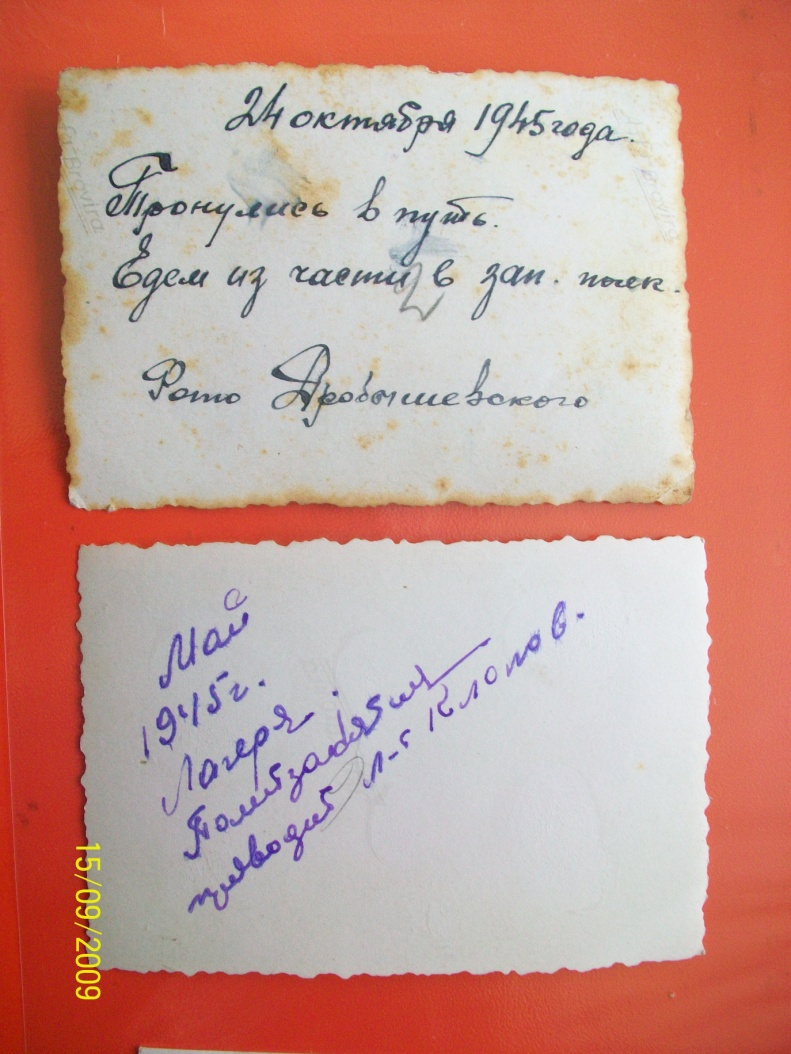 24 октября 1945 года.
Тронулись в путь.
Едем из части в зап. полк.
2
Фото Дробышевского
Bravira
Май
1945 г.
Лагеря.
Политзанятия
проводит л-т Клопов.
15/09/2009